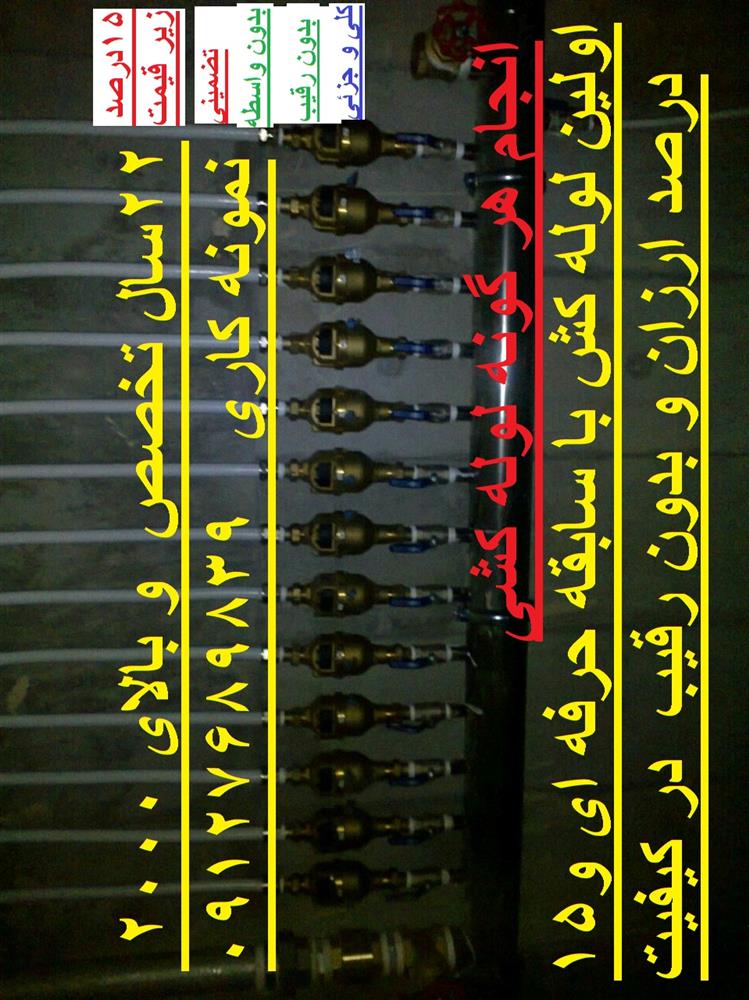 ۱۵درصد
زیر قیمت
تضمینی
بدون واسطه
بدون رقیب
کلی و جزئی
۲۲سال تخصص و بالای ۲۰۰۰
نمونه کاری ۰۹۱۲۷۶۸۹۸۳۹
انجام هر گونه لوله کشی
اولین لوله کش با سابقه حرفه ای و۱۵
درصد ارزان و بدون رقیب در کیفیت